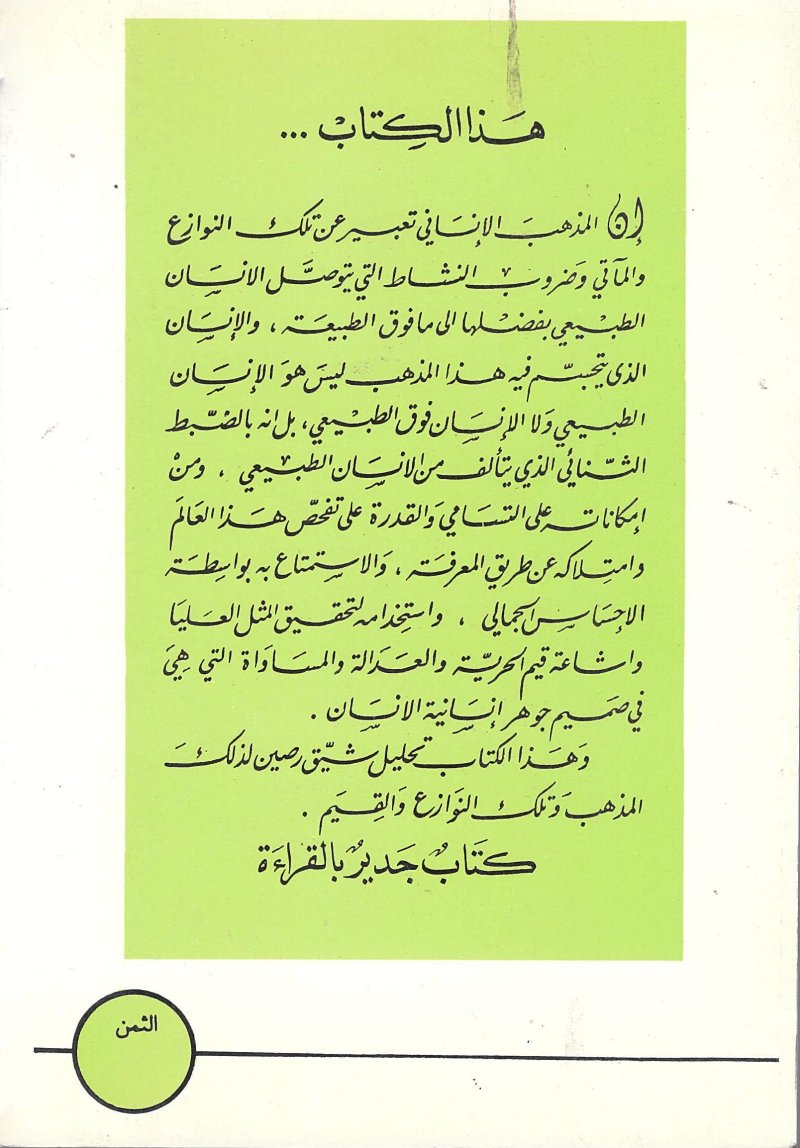 هَذا الكِتابْ ...
إن المذهبَ الإنسَاني تعبير عن تلك النوازع
والمآتي وَضروب النشاط التي يتوصَّل الانسَان
الطبْيعي بفضْلها الى ما فوق الطبيعَة ، والإنسَان
الذي يتجسّم فيه هذا المذهب ليسَ هوَ الإنسَان
الطبيعي وَلا الإنسَان فوق الطبْيعي، بل انه بالضّبط
الثّنائي الذي يتألف من الانسَان الطبْيعي ، ومنْ
إمكاناته على التسَامي وَالقدرة على تفحّص هَذا العَالمَ
وامتِلاكه عن طريق المعرفَة ، وَالاستمتاع به بواسِطَة
الاحسَاس الجمالي ، واستِخدامه لتحقيق المثل العَليَا
واشاعة قيم الحريّة والعَدالة والمسَاوَاة التي هِيَ
في صَميم جوهر إنسَانية الانسَان .
وَهَذا الكتاب تحليل شيّق رصين لذلكَ
المذهبَ وَتلك النوَازع وَالقِيَم .
كتَابٌ جَديرٌ بالقراءَة
الثمن